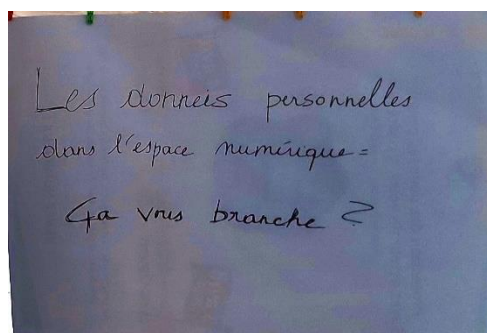 Les donneis personnelles
dans l'espace numérique =
ça vous branche ?